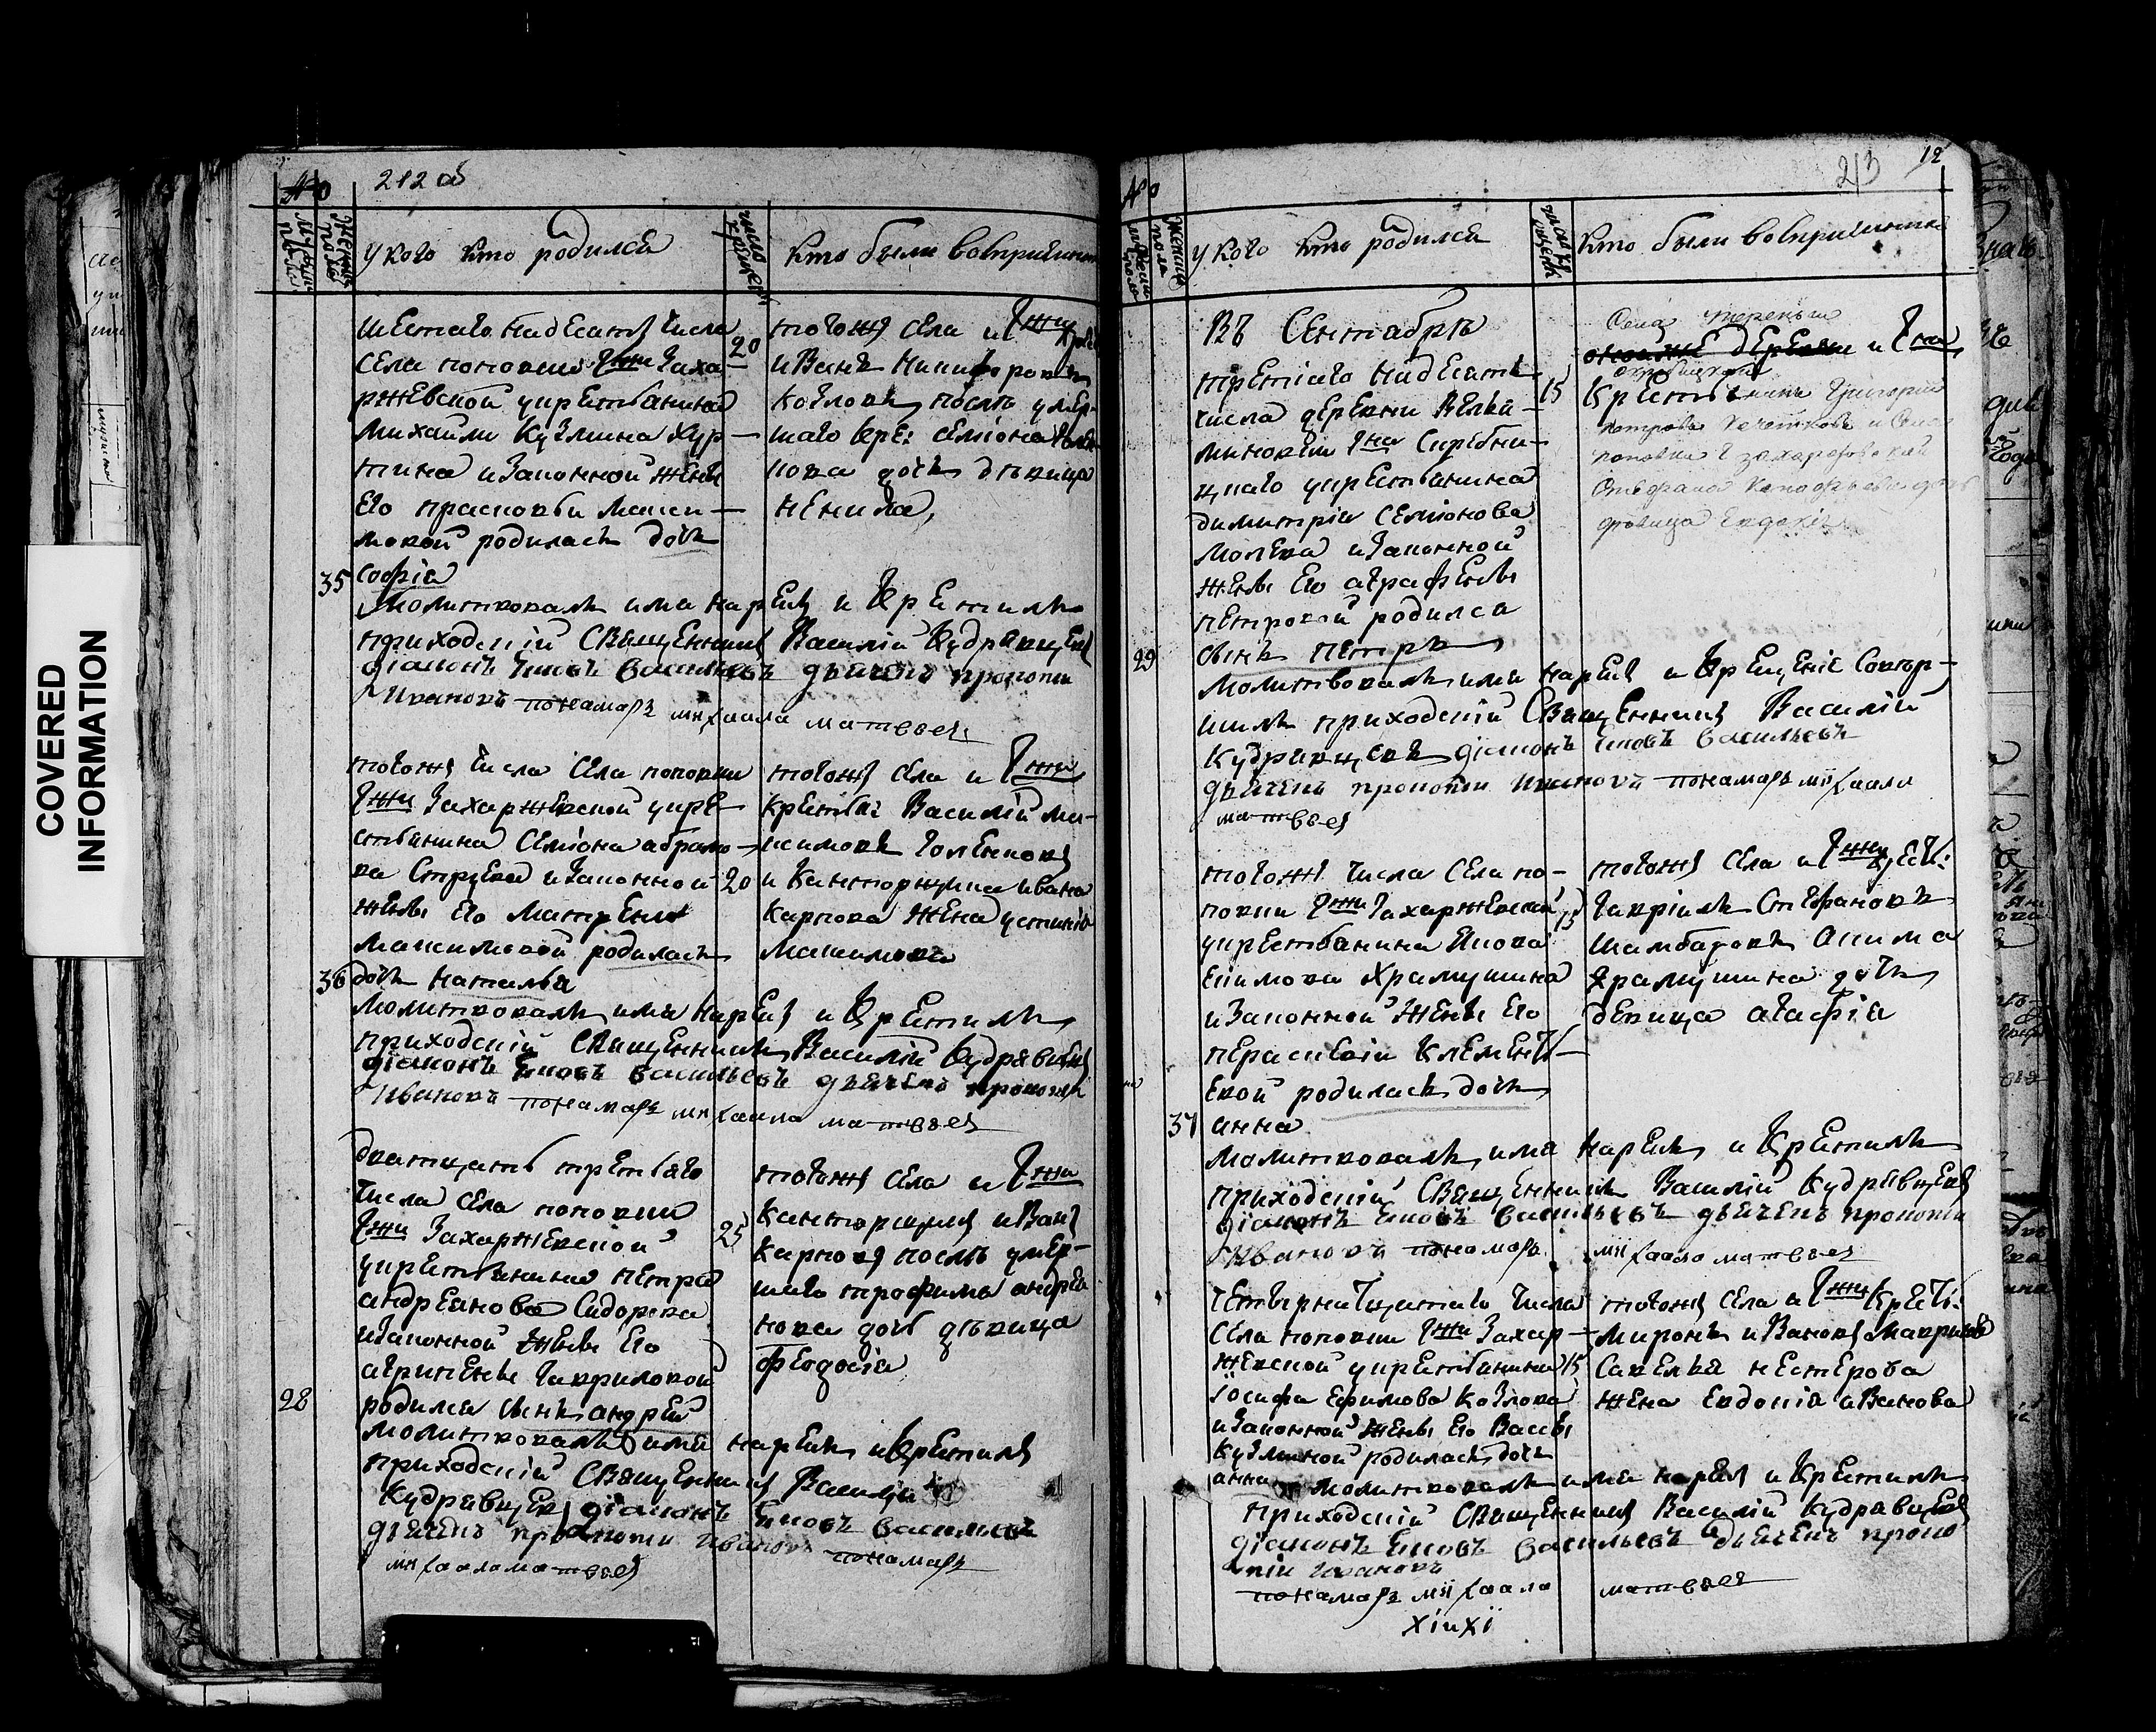 212 об
№
Мужеска пола
Женска пола
у кого кто родился
число крещения
кто были восприемники
шестаго надесять числа
села поповки Гжи Заха-
ржевской у крестьянина
Михайли Кузмина Хур-
тина и законной жены
его прасковьи Макси-
мовой родилась дочь
35 Софія
20
тогожъ села и Гжи
иванъ Никифоровъ
Козловъ после умер-
шаго кре: семіона
нова дочь девица
ненила,
Молитвовалъ имя нарекъ и Крестилъ
приходскій Священникъ Василій Кудрявцевъ
діаконъ Іаковъ васильевъ дьячекъ прокопи
Ивановъ понамарь михаала матвеевъ
тогожъ числа села поповки
Гжи Захаржевской у кре-
стьянина Семіона абрамо-
ва Струева и законной
жены его Матрены
Максимовой родилась
36 дочь Наталья
20
тогожъ села и Гжи
крестья: Василій ма-
ксимовъ Голенковъ
и Канторщика ивана
Карпова жена устинія
Максимова
Молитвовалъ имя нарекъ и Крестилъ
приходскій Священникъ Василій Кудрявцевъ
діаконъ Іаковъ васильевъ дьячекъ прокопій
Ивановъ понамарь михаала матвеевъ
дватцать третьяго
числа села поповки
Гжи Захаржевской
у крестьянина петра
андреянова Сидорова
и законной жены его
агрипены Гавриловой
28 родился сынъ андрей
25
тогожъ села и Гжи
канторщикъ иванъ
Карповъ после умер-
шаго трофима андрея
нова дочь девица
феодосія
Молитвовалъ имя нарекъ и Крестилъ
приходскій Священникъ Василій
Кудрявцевъ діаконъ Іаковъ васильевъ
дьячекъ прокопи Ивановъ понамарь
михаала матвеевъ
213
12
№
Женска пола
у кого кто родился
кто были восприемники
Въ Сентябре
третіаго надесять
числа деревни Вельй-
миновки Гна Скребни-
цкаго у крестьянина
димитрія семіонова
Молева и законной
жены его аграфены
петровой родился
29 сынъ петръ
15
Села
деревни и Гна
Крестьянинъ Григорій
петровъ и Села
поповки Г захаржевской
девица Евдокія
Молитвовалъ имя нарекъ и Крещеніе Совер-
шилъ приходскій Священникъ Василій
Кудрявцевъ діаконъ Іаковъ васильевъ
дьячекъ прокопи Ивановъ понамарь михаала
матвеевъ
тогожъ числа Села по-
повки Гжи Захаржевской
у крестьянина Якова
Екимова Храмушина
и законной жены его
перасковіи Клементь-
евой родилась дочь
37 анна
15
тогожъ села и Гжи крестья:
Гавріилъ Стефановъ
Шамбаровъ акима
Храмушина дочь
девица агафія
Молитвовалъ имя нарекъ и Крестилъ
приходскій Священникъ Василій Кудрявцевъ
діаконъ Іаковъ васильевъ дьячекъ прокопи
Ивановъ понамарь михаала матвеевъ
четвернатцатаго числа
Села поповки Гжи Захар-
жевской у крестьянина
Іосифа Ефимова Козлова
и законной жены его Вассы
Кузминой родилась дочь
анна
15
тогожъ села и Гжи крестья:
Миронъ ивановъ
Савелья нестерова
жена Евдокія иванова
Молитвовалъ имя нарекъ и Крестилъ
приходскій Священникъ Василій Кудрявцевъ
діаконъ Іаковъ васильевъ дьячекъ проко
пій Ивановъ
понамарь михаала матвеевъ
COVERED
INFORMATION